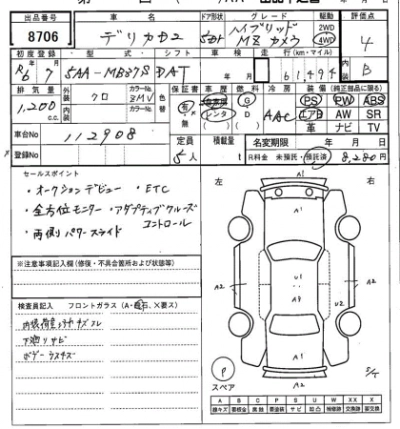 出品番号 車名 ドア形状 グレード 駆動 評価点
8706 デリカD2 5D ハイブリッド MZ カメラ 2WD 4WD 4
初度登録 型式 シフト 車検 走行(km・マイル) 内装
R6 7 5AA-MB37S DAT 年 月 61,494 B
排気量 外装 カラーNo. 色替 保証書 車歴 燃料 冷房 装備(純正部品に限る)
1,200 c.c. クロ ZMV 有 無 自家用 レンタ G D AAC PS PW ABS
エアB AW SR
革 ナビ TV
車台No 112908 定員 積載量 名変期限 年 月 日
登録No 5人 t R料金 未預託・預託済 8,280円
セールスポイント
・オークションデビュー ・ETC
・全方位モニター ・アダプティブクルーズコントロール
・両側パワースライド
※注意事項記入欄(修復・不具合箇所および状態等)
検査員記入 フロントガラス(A・飛石、X要ス)
下廻りサビ
左 右
A1
A1
A2 U2 A2
A9
U2
A1
A2
P
スペア
S/T
A B C P S U W X XX